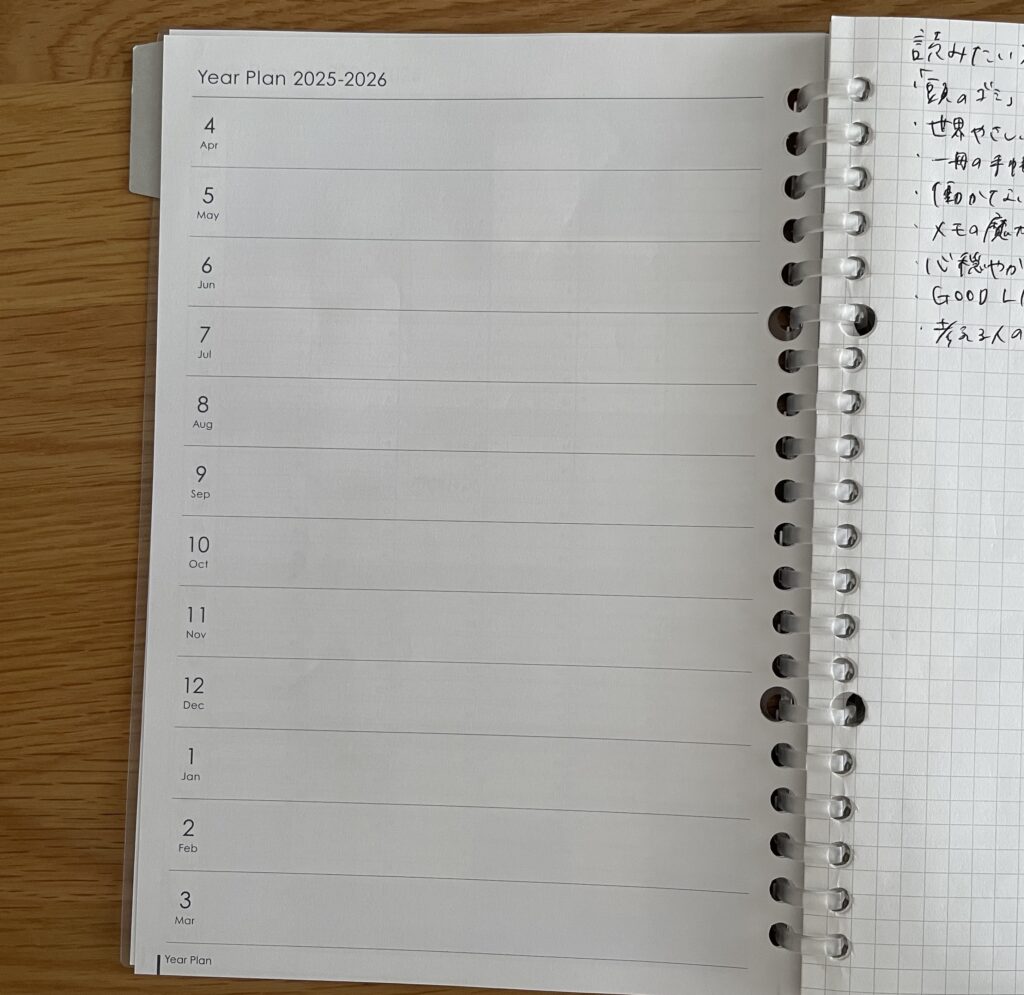 Year Plan 2025-2026
4
Apr
5
May
6
Jun
7
Jul
8
Aug
9
Sep
10
Oct
11
Nov
12
Dec
1
Jan
2
Feb
3
Mar
Year Plan
読みたい
・「頭のゴミ」
・世界やさし
・一冊の手帳
・働かない
・メモの魔力
・心穏やか
・GOOD LI
・考える人の